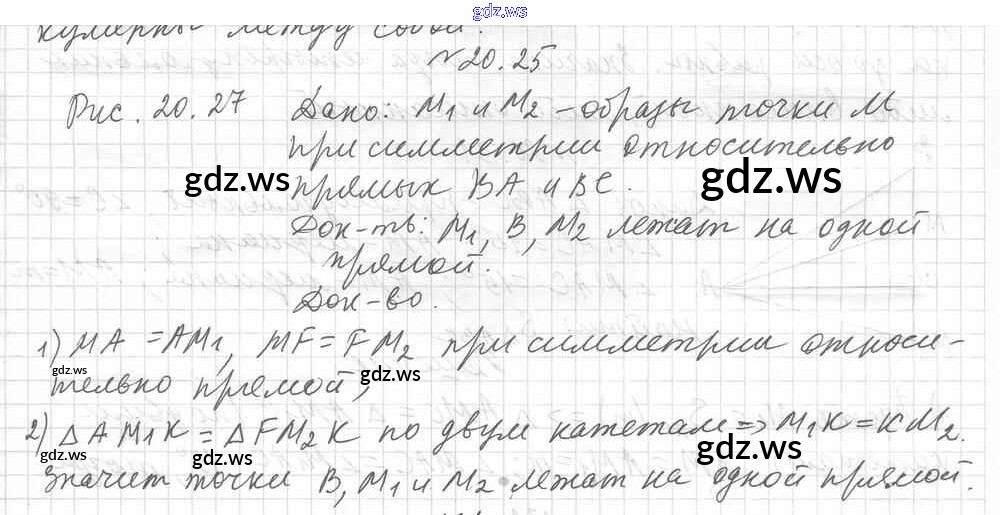 gdz.ws
кулярны между собой.
№20.25
Рис. 20.27 Дано: M₁ и M₂ – образы точки M
при симметрии относительно
gdz.ws gdz.ws
прямых BA и BC.
Док-ть: M₁, B, M₂ лежат на одной
прямой.
Док-во.
1) MA = AM₁, MF = FM₂ при симметрии относи-
gdz.ws gdz.ws
тельно прямой,
2) △AM₁K = △FM₂K по двум катетам ⇒ M₁K = KM₂.
gdz.ws gdz.ws gdz.ws
Значит точки B, M₁ и M₂ лежат на одной прямой.